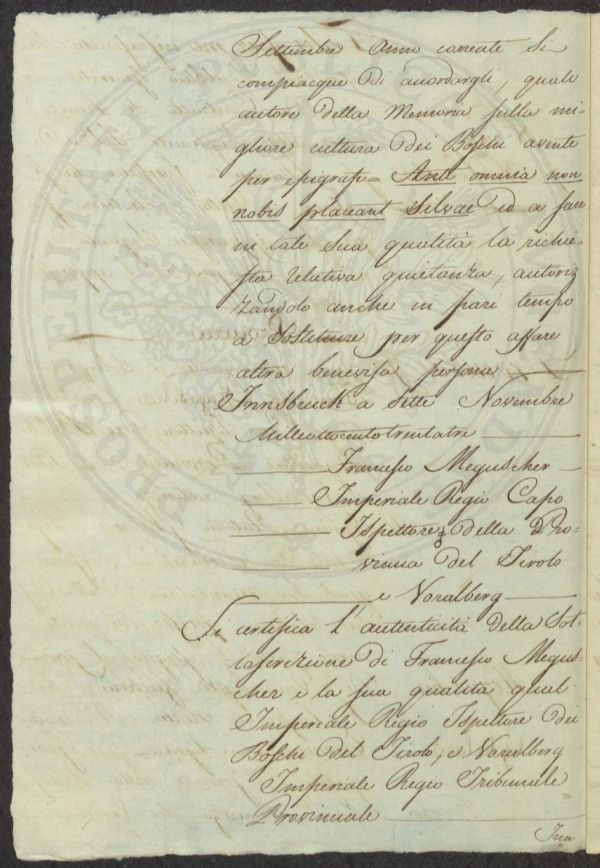 Settembre anno corrente si
compiacque di accordargli, quale
autore della Memoria sulla mi-
gliore cultura dei Boschi avente
per epigrafe = Ante omnia non
nobis placeant Silvae ed a fare
in tale sua qualità la richie-
sta relativa quietanza, autoriz
zandolo anche in pari tempo
a Sostituire per questo affare
altra benevisa persona
Innsbruck a sette Novembre
Milleottocentotrentatre
Francesco Meguscher
Imperiale Regio Capo
Ispettore della Pro-
vincia del Tirolo
e Voralberg
Si certifica l'autenticità della Sot-
toscrizione di Francesco Megus-
cher e la sua qualità qual
Imperiale Regio Ispettore dei
Boschi del Tirolo, e Voralberg
Imperiale Regio Tribunale
Provinciale
Inn